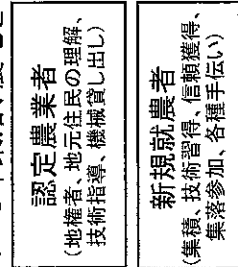 認定農業者
(地権者、地元住民の理解、
技術指導、機械貸し出し)
新規就農者
(集積、技術習得、信頼獲得、
集落参加、各種手伝い)